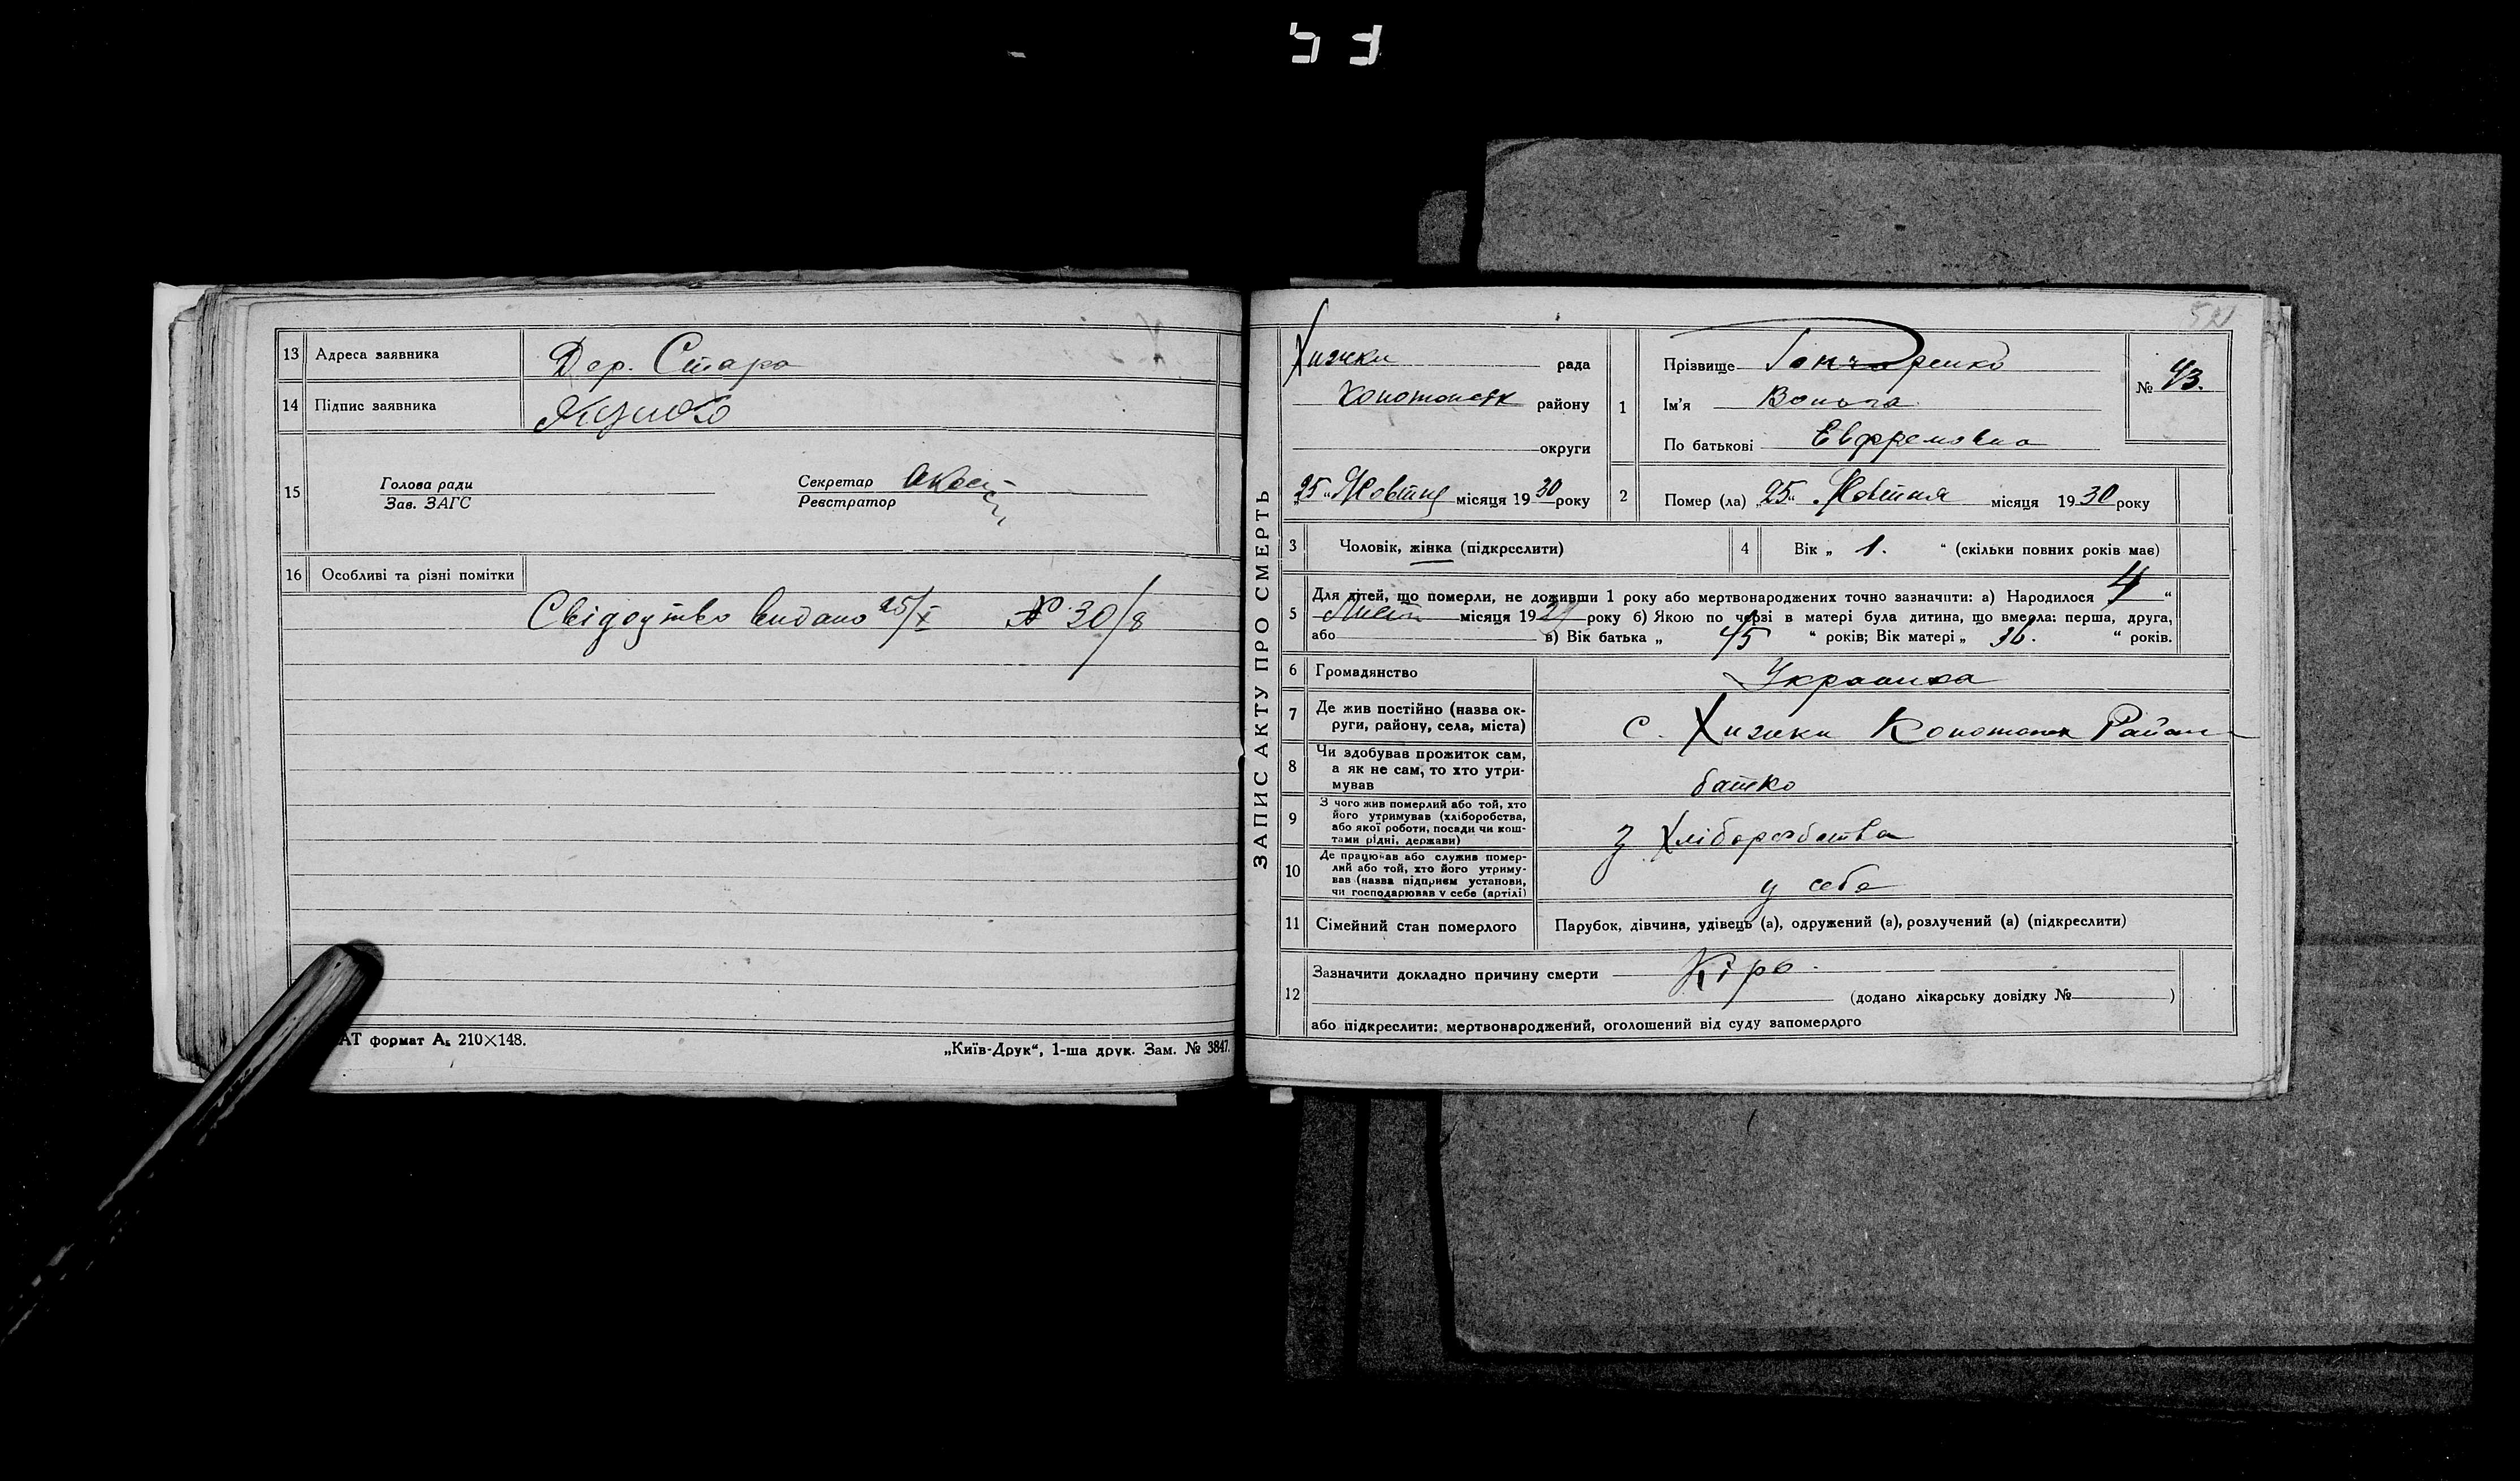 13 Адреса заявника Дер. Стара
14 Підпис заявника
15 Голова ради
Зав. ЗАГС
Секретар
Реєстратор
16 Особливі та різні помітки
Свідоцтво видано 25/X № 30/8
АТ формат А₅ 210×148.
„Київ-Друк“, 1-ша друк. Зам. № 3847.
ЗАПИС АКТУ ПРО СМЕРТЬ
Хижки рада
Конотопськ району
округи
„25„ Жовтня місяця 1930 року
1 Прізвище Гончаренко
Ім'я
По батькові Евфремовна
№ 43.
2 Помер (ла) „25„ Жовтня місяця 1930 року
3 Чоловік, жінка (підкреслити)
4 Вік „ 1. “ (скільки повних років має)
5 Для дітей, що померли, не доживши 1 року або мертвонароджених точно зазначити: а) Народилося “
місяця 1929 року б) Якою по черзі в матері була дитина, що вмерла: перша, друга,
або в) Вік батька „ 45 “ років; Вік матері „ 36. “ років.
6 Громадянство Украинка
7 Де жив постійно (назва ок-
руги, району, села, міста) с. Хижки Конотопск Район
8 Чи здобував прожиток сам,
а як не сам, то хто утри-
мував батко
9 З чого жив померлий або той, хто
його утримував (хліборобства,
або якої роботи, посади чи кош-
тами рідні, держави) З Хліборобства
10 Де працював або служив помер-
лий або той, хто його утриму-
вав (назва підприєм установи,
чи господарював у себе (артілі) у себе
11 Сімейний стан померлого Парубок, дівчина, удівець (а), одружений (а), розлучений (а) (підкреслити)
12 Зазначити докладно причину смерти Кірь
(додано лікарську довідку № )
або підкреслити: мертвонароджений, оголошений від суду запомерлого